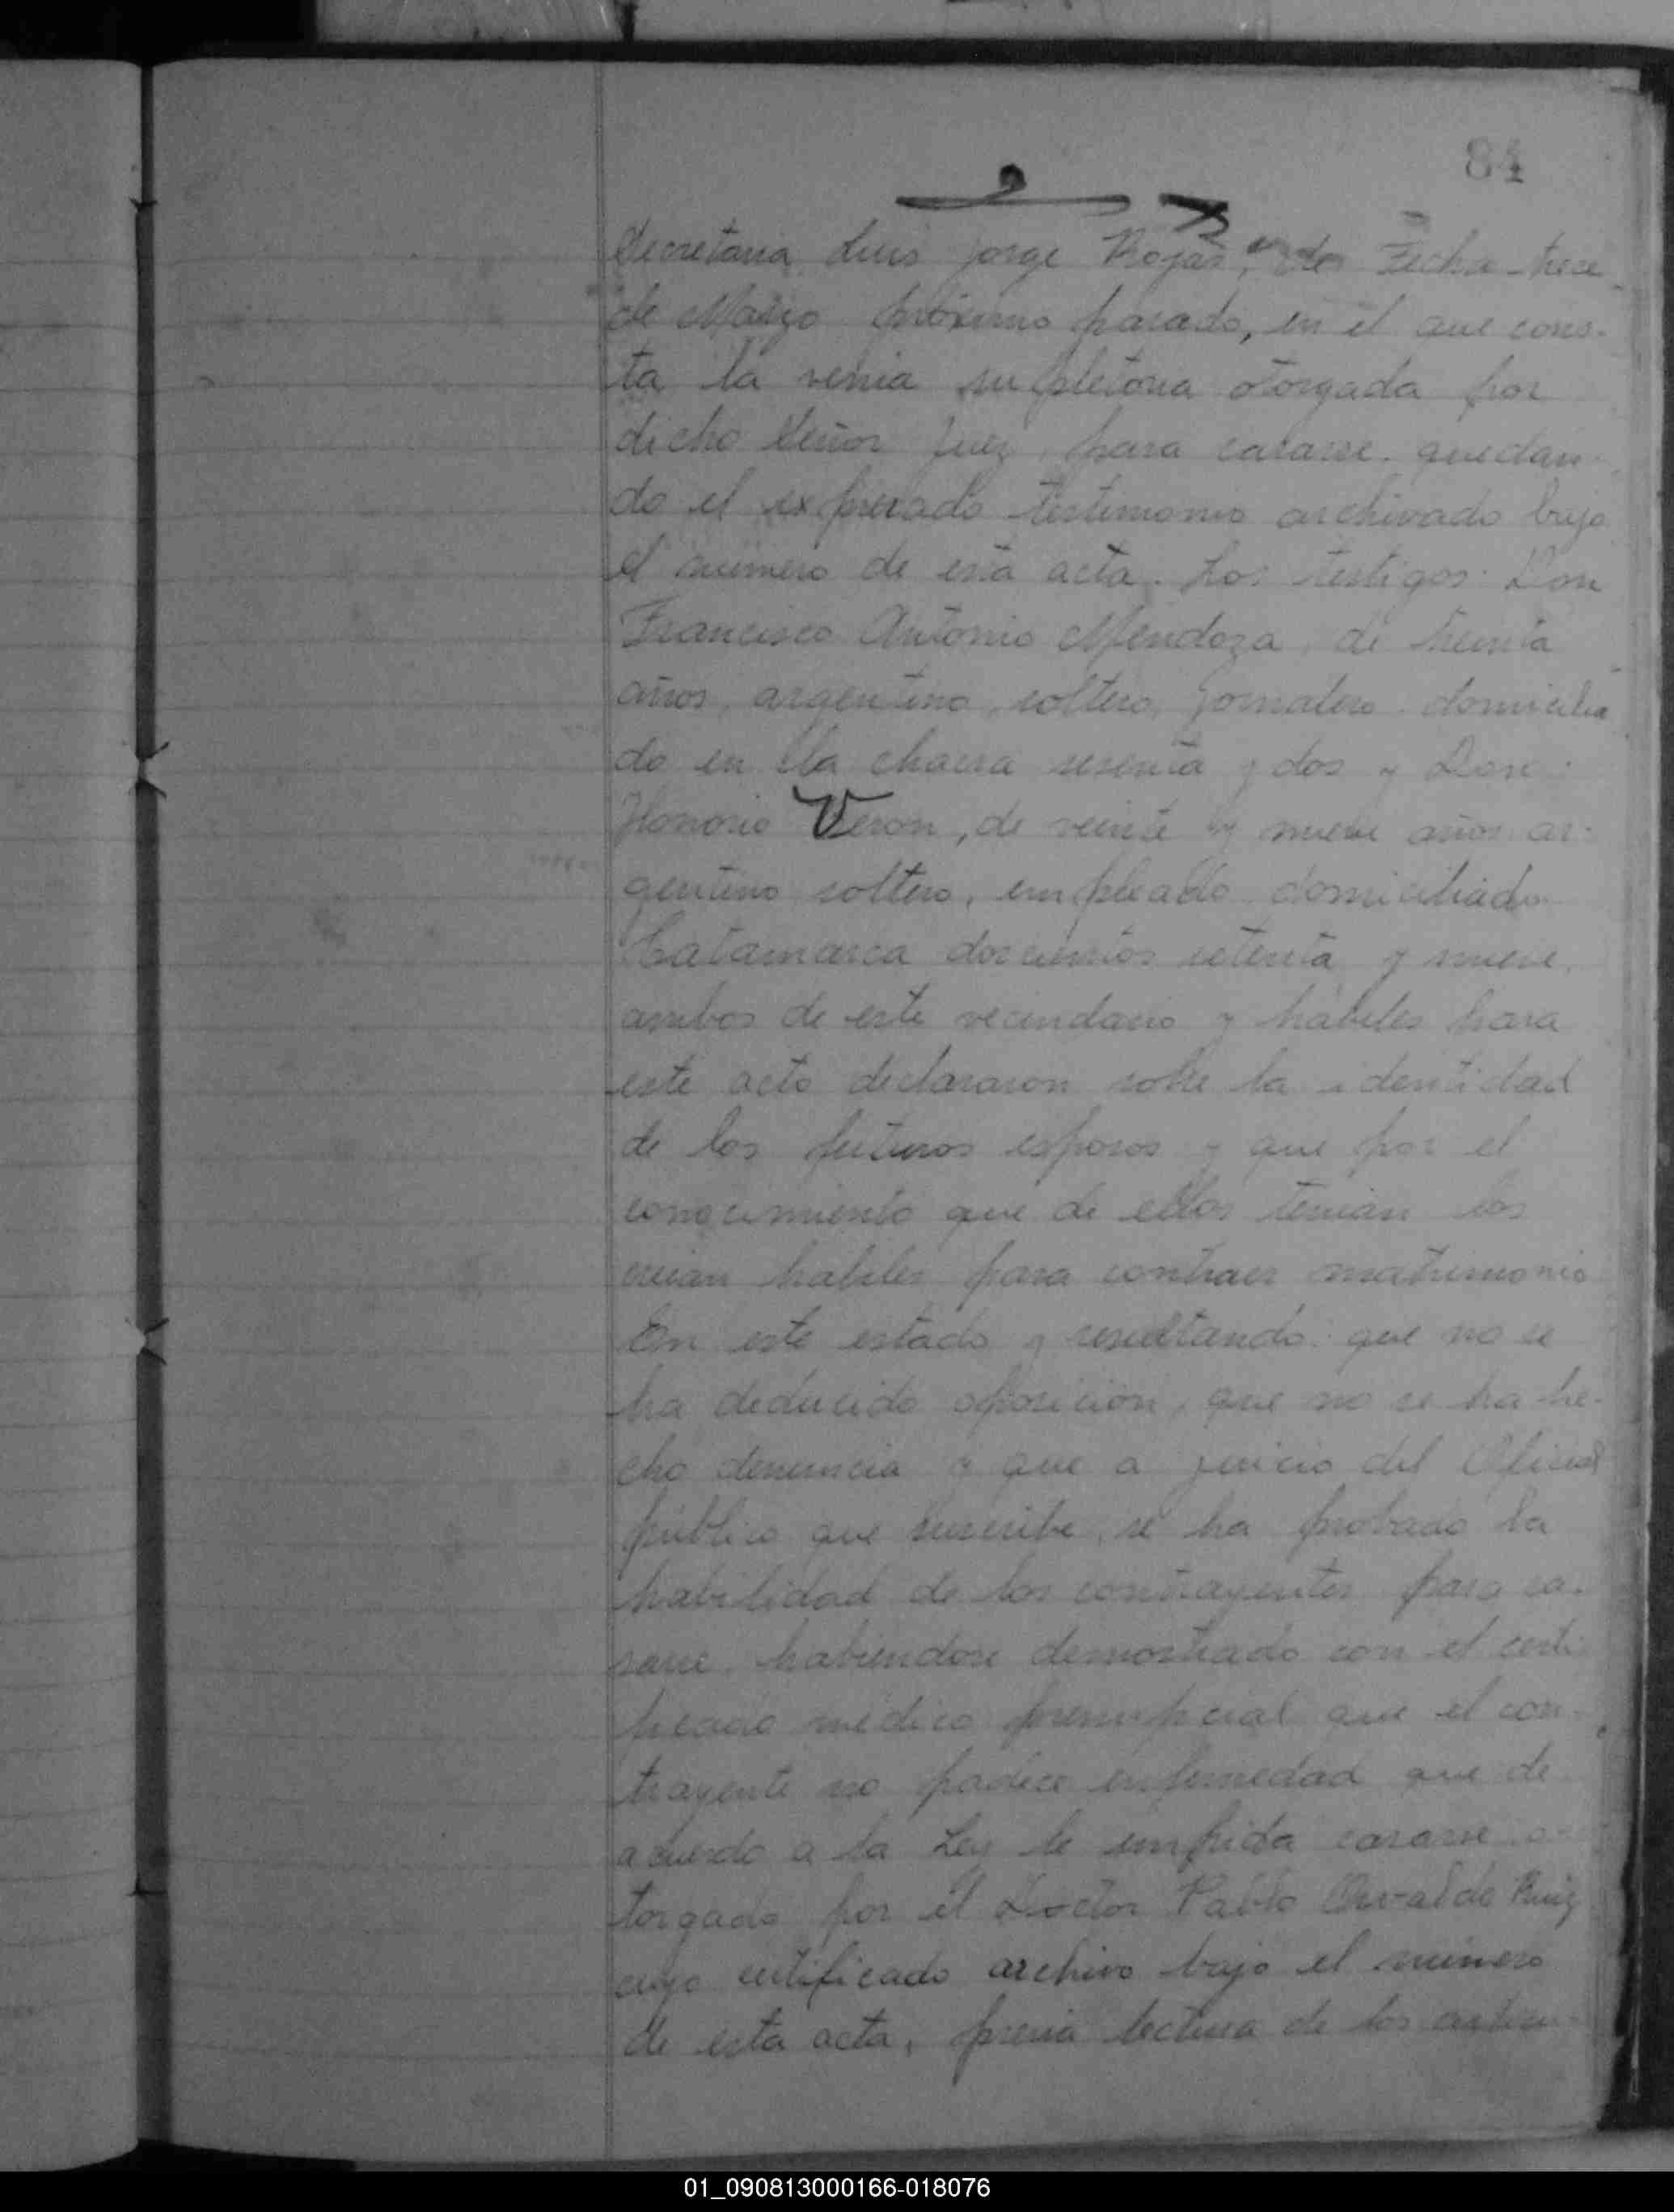 84
Secretaria Luis Jorge Rojas, de Fecha trece
de Marzo próximo pasado, en el que cons-
ta la venia supletoria otorgada por
dicho Señor Juez, para casarse, quedan-
do el expresado testimonio archivado bajo
el número de esta acta. Los testigos: Don
Francisco Antonio Mendoza, de treinta
años, argentino, soltero, jornalero, domicilia
do en la chacra sesenta y dos y Don
Honorio Veron, de veinte y nueve años ar-
gentino soltero, empleado domiciliado
Catamarca doscientos setenta y nueve,
ambos de este vecindario y hábiles para
este acto declararon sobre la identidad
de los futuros esposos y que por el
conocimiento que de ellos tenian los
creian habiles para contraer matrimonio
En este estado y resultando: que no se
ha deducido oposición, que no se ha he-
cho denuncia y que a juicio del Oficial
público que suscribe, se ha probado la
habilidad de los contrayentes para ca-
sarse, habiendose demostrado con el certi-
ficado médico prenupcial que el con-
trayente no padece enfermedad que de
acuerdo a la Ley le impida casarse, o-
torgado por el Doctor Pablo Osvaldo Ruiz
cuyo certificado archivo bajo el número
de esta acta, previa lectura de los
01_090813000166-018076